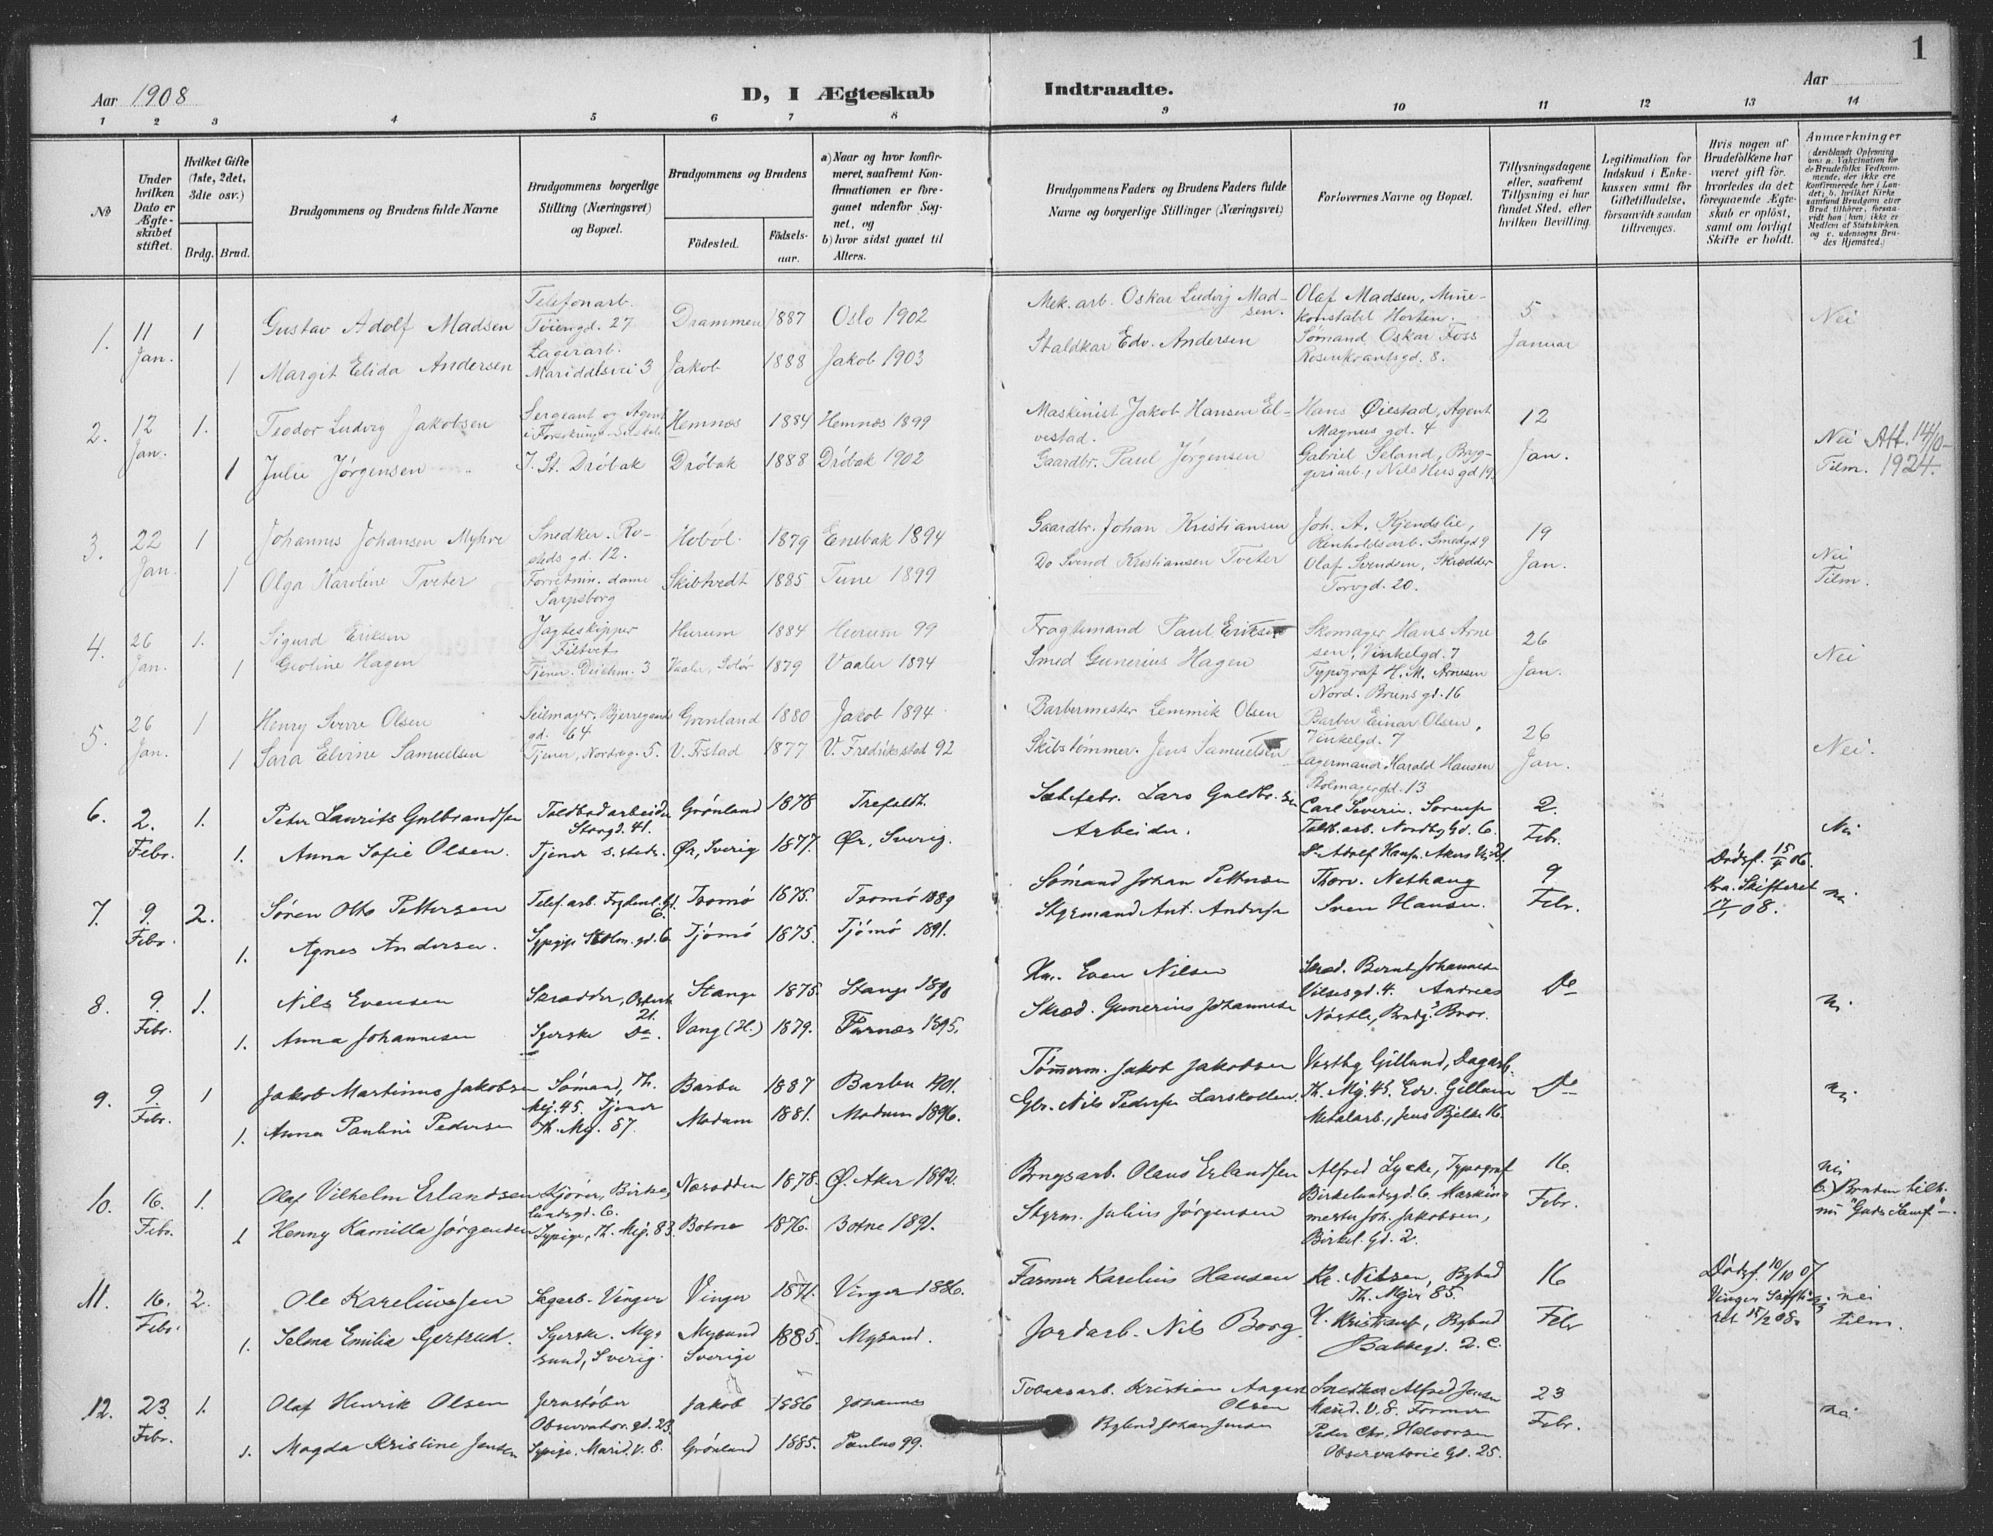 1
Aar 1908
D, I Ægteskab Indtraadte.
Aar
1 2 3 4 5 6 7 8 9 10 11 12 13 14
No
Under hvilken Dato er Ægteskabet stiftet.
Hvilket Gifte (1ste, 2det, 3die osv.)
Brdg. Brud.
Brudgommens og Brudens fulde Navne
Brudgommens borgerlige Stilling (Næringsvei) og Bopæl.
Brudgommens og Brudens
Fødested.
Fødselsaar.
a) Naar og hvor konfirmeret, saafremt Konfirmationen er foregaaet udenfor Sognet, og
b) hvor sidst gaaet til Alters.
Brudgommens Faders og Brudens Faders fulde Navne og borgerlige Stillinger (Næringsvei)
Forlovernes Navne og Bopæl.
Tillysningsdagene eller, saafremt Tillysning ei har fundet Sted, efter hvilken Bevilling.
Legitimation for Indskud i Enkekassen samt for Giftetilladelse, forsaavidt saadan tiltrænges.
Hvis nogen af Brudefolkene har været gift før, hvorledes da det foregaaende Ægteskab er opløst, samt om lovligt Skifte er holdt.
Anmærkninger
1. 11 Jan. 1 Gustav Adolf Madsen Telefonarb. Tøiengd. 27 Drammen 1887 Oslo 1902 Mek. arb. Oskar Ludvig Madsen. Olaf Madsen, Minekonstabel Horten. 5 Januar Nei
1 Margit Elida Andersen Lagerarb. Mariddlsvei 3 Jakob 1888 Jakob 1903 Staldkar Edv. Andersen Sømand Oskar Foss Rosenkrantsgd. 8.
2. 12 Jan. 1. Teodor Ludvig Jakobsen Sergeant og Agent Hemnæs 1884 Hemnæs 1899 Maskinist Jakob Hansen Elvestad. Hans Øiestad, Agent Magnus gd. 4 12 Jan. Nei Att. 14/10-1924.
1 Julie Jørgensen J. St. Drøbak Drøbak 1888 Drøbak 1902 Gaardbr. Paul Jørgensen Gabriel Seland, Bryggeriarb., Nils Hus gd 19. Tilm.
3. 22 Jan. 1 Johannes Johansen Myhre Snedker. Rostedsgd. 12. Hobøl 1879 Enebak 1894 Gaardbr. Johan Kristiansen Joh. A. Kjendslie, Renholdsarb. Smedgd 9 19 Jan. Nei
1 Olga Karoline Tveter Forretnin. dame Sarpsborg Skibtvedt 1885 Tune 1899 Do Svend Kristiansen Tveter Olaf Svendsen, Skrædder Torvgd. 20. Tilm.
4. 26 Jan. 1. Sigurd Eriksen Jagteskipper Filtvet Hurum 1884 Hurum 99 Fragtemand Paul Eriksen Skomager Hans Arnesen, Vinkelgd. 7 26 Jan. Nei
1 Geoline Hagen Tjener. Deichm. 3 Vaaler, Solør 1879 Vaaler 1894 Smed Gunerius Hagen Typograf H. M. Arnesen Nord. Bruns gd. 16
5. 26 Jan. 1 Henry Sverre Olsen Seilmager, Bjerregaardsgd. 64 Grønland 1880 Jakob 1894 Barbermester Lemmik Olsen Barber Einar Olsen, Vinkelgd. 7 26 Jan. Nei.
1 Sara Elvine Samuelsen Tjener, Nordreg. 5. V. Fstad 1877 V. Fredriksstad 92 Skibstømmer. Jens Samuelsen Lagermand Harald Hansen Stolmagergd. 13
6. 2. Febr. 1. Peter Laurits Gulbrandsen Toldbodarbeider Storgd. 41. Grønland 1878 Trefoldt. Lars Guldbr.sen Carl Severin 2. Febr. Nei
1. Anna Sofie Olsen. Tjener s. steds. Ør, Sverig 1877. Ør, Sverig. Arbeider.
7. 9. Febr. 2. Søren Otto Pettersen Telef. arb. Frydenl. gd. 6. Tromø 1875. Tromø 1889 Sømand Johan Pettersen Thorv. Nethaug 9 Febr. Dødsf. 15/9 06. Kra. Skifteret 17/1 08. nei
1. Agnes Andersen. Sypige Stolm. gd. 6 Tjømø 1875. Tjømø 1891. Styrmand Ant. Andersen Sven Hansen.
8 9. Febr. 1. Nils Evensen Skrædder, Stange 1875. Stange 1890 Even Nilsen Skræd. Bernt Johannesen Vibesgd. 4. Do nei
1. Anna Johannesen Syerske Do. Vang (H.) 1879. Furnæs 1895. Skræd. Gunerius Johannesen Andreas Nøstle, Brudg.s Bror.
9. 9. Febr. 1 Jakob Martinus Jakobsen Sømand, Th. Mej. 45. Barbu 1887 Barbu 1901. Tømmerm. Jakob Jakobsen Vestby Gillund, Dagarb. Th. Mej. 45. Do nei
1. Anna Pauline Pedersen Tjener Th. Mej. 87. Modum 1881. Modum 1896. Gbr. Nils Pedersen Larskollen. Edv. Gillund Metalarb., Jens Bjelkes 16.
10. 16. Febr. 1. Olaf Vilhelm Erlandsen Kjører, Birkelundsgd. 6. Næsodden 1878. Ø. Aker 1892. Brygsarb. Olaus Erlandsen Alfred Lycke, Typograf Birkelundsgd. 6. 16. Febr. nei b.) Bruden tilh.
1 Henny Kamilla Jørgensen Sypige, Th. Mej. 83. Botne 1876. Botne 1891. Styrm. Julius Jørgensen Maskinmester Joh. Jakobsen, Birkel. gd. 2.
11. 16. Febr. 2. Ole Kareliussen Sagarb. Vinger Vinger 1871. Vinger 1886. Farmer Karelius Hansen Kr. Nilsen, Bybud Th. Mejer 85. 16 Febr Dødsf. 10/10 07. Vinger Skifteret 15/2 08. nei
1. Selma Emilia Gertrud. Syerske. Mysund, Sverig. Mysund Sverige 1885. Mysund. Jordarb. Nils Borg. Kristians, Bybud Bakkegd. 2. c. tilm.
12. 23. Febr. 1. Olaf Henrik Olsen Jernstøber Observator. gd. 23. Jakob 1886 Johannes Tobaksarb. Kristian August Olsen Snedker Alfred Jensen Marid. V. 8. 23 Febr. nei
1. Magda Kristine Jensen Sypige. Marid. V. 8. Grønland 1885. Paulus 99. Bybud Johan Jensen Former Peter Chr. Halvorsen Observatorie Gd. 25.